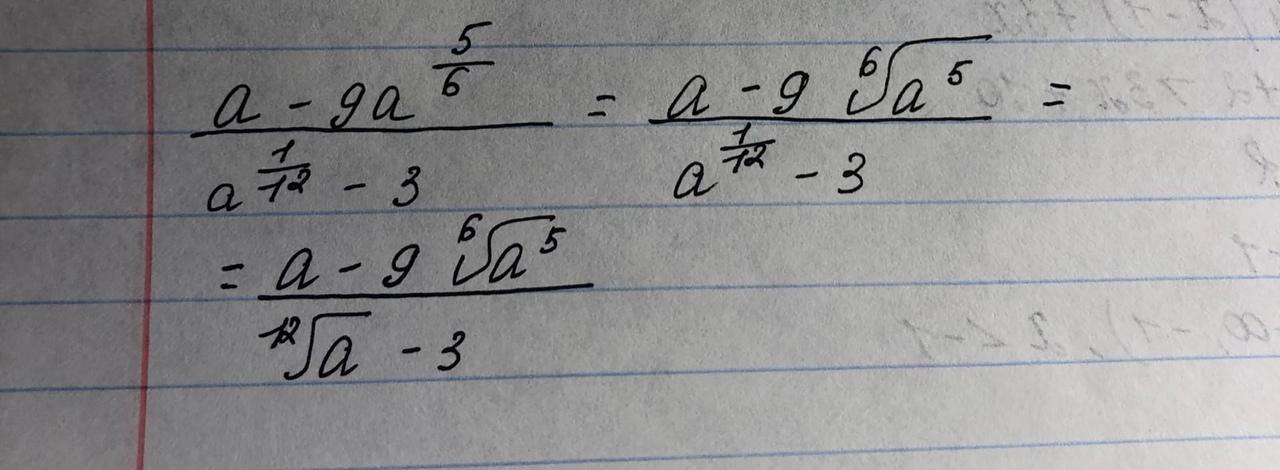 a - 9a^(5/6) / a^(1/12) - 3 = a - 9 ⁶√a⁵ / a^(1/12) - 3 =
= a - 9 ⁶√a⁵ / ¹²√a - 3